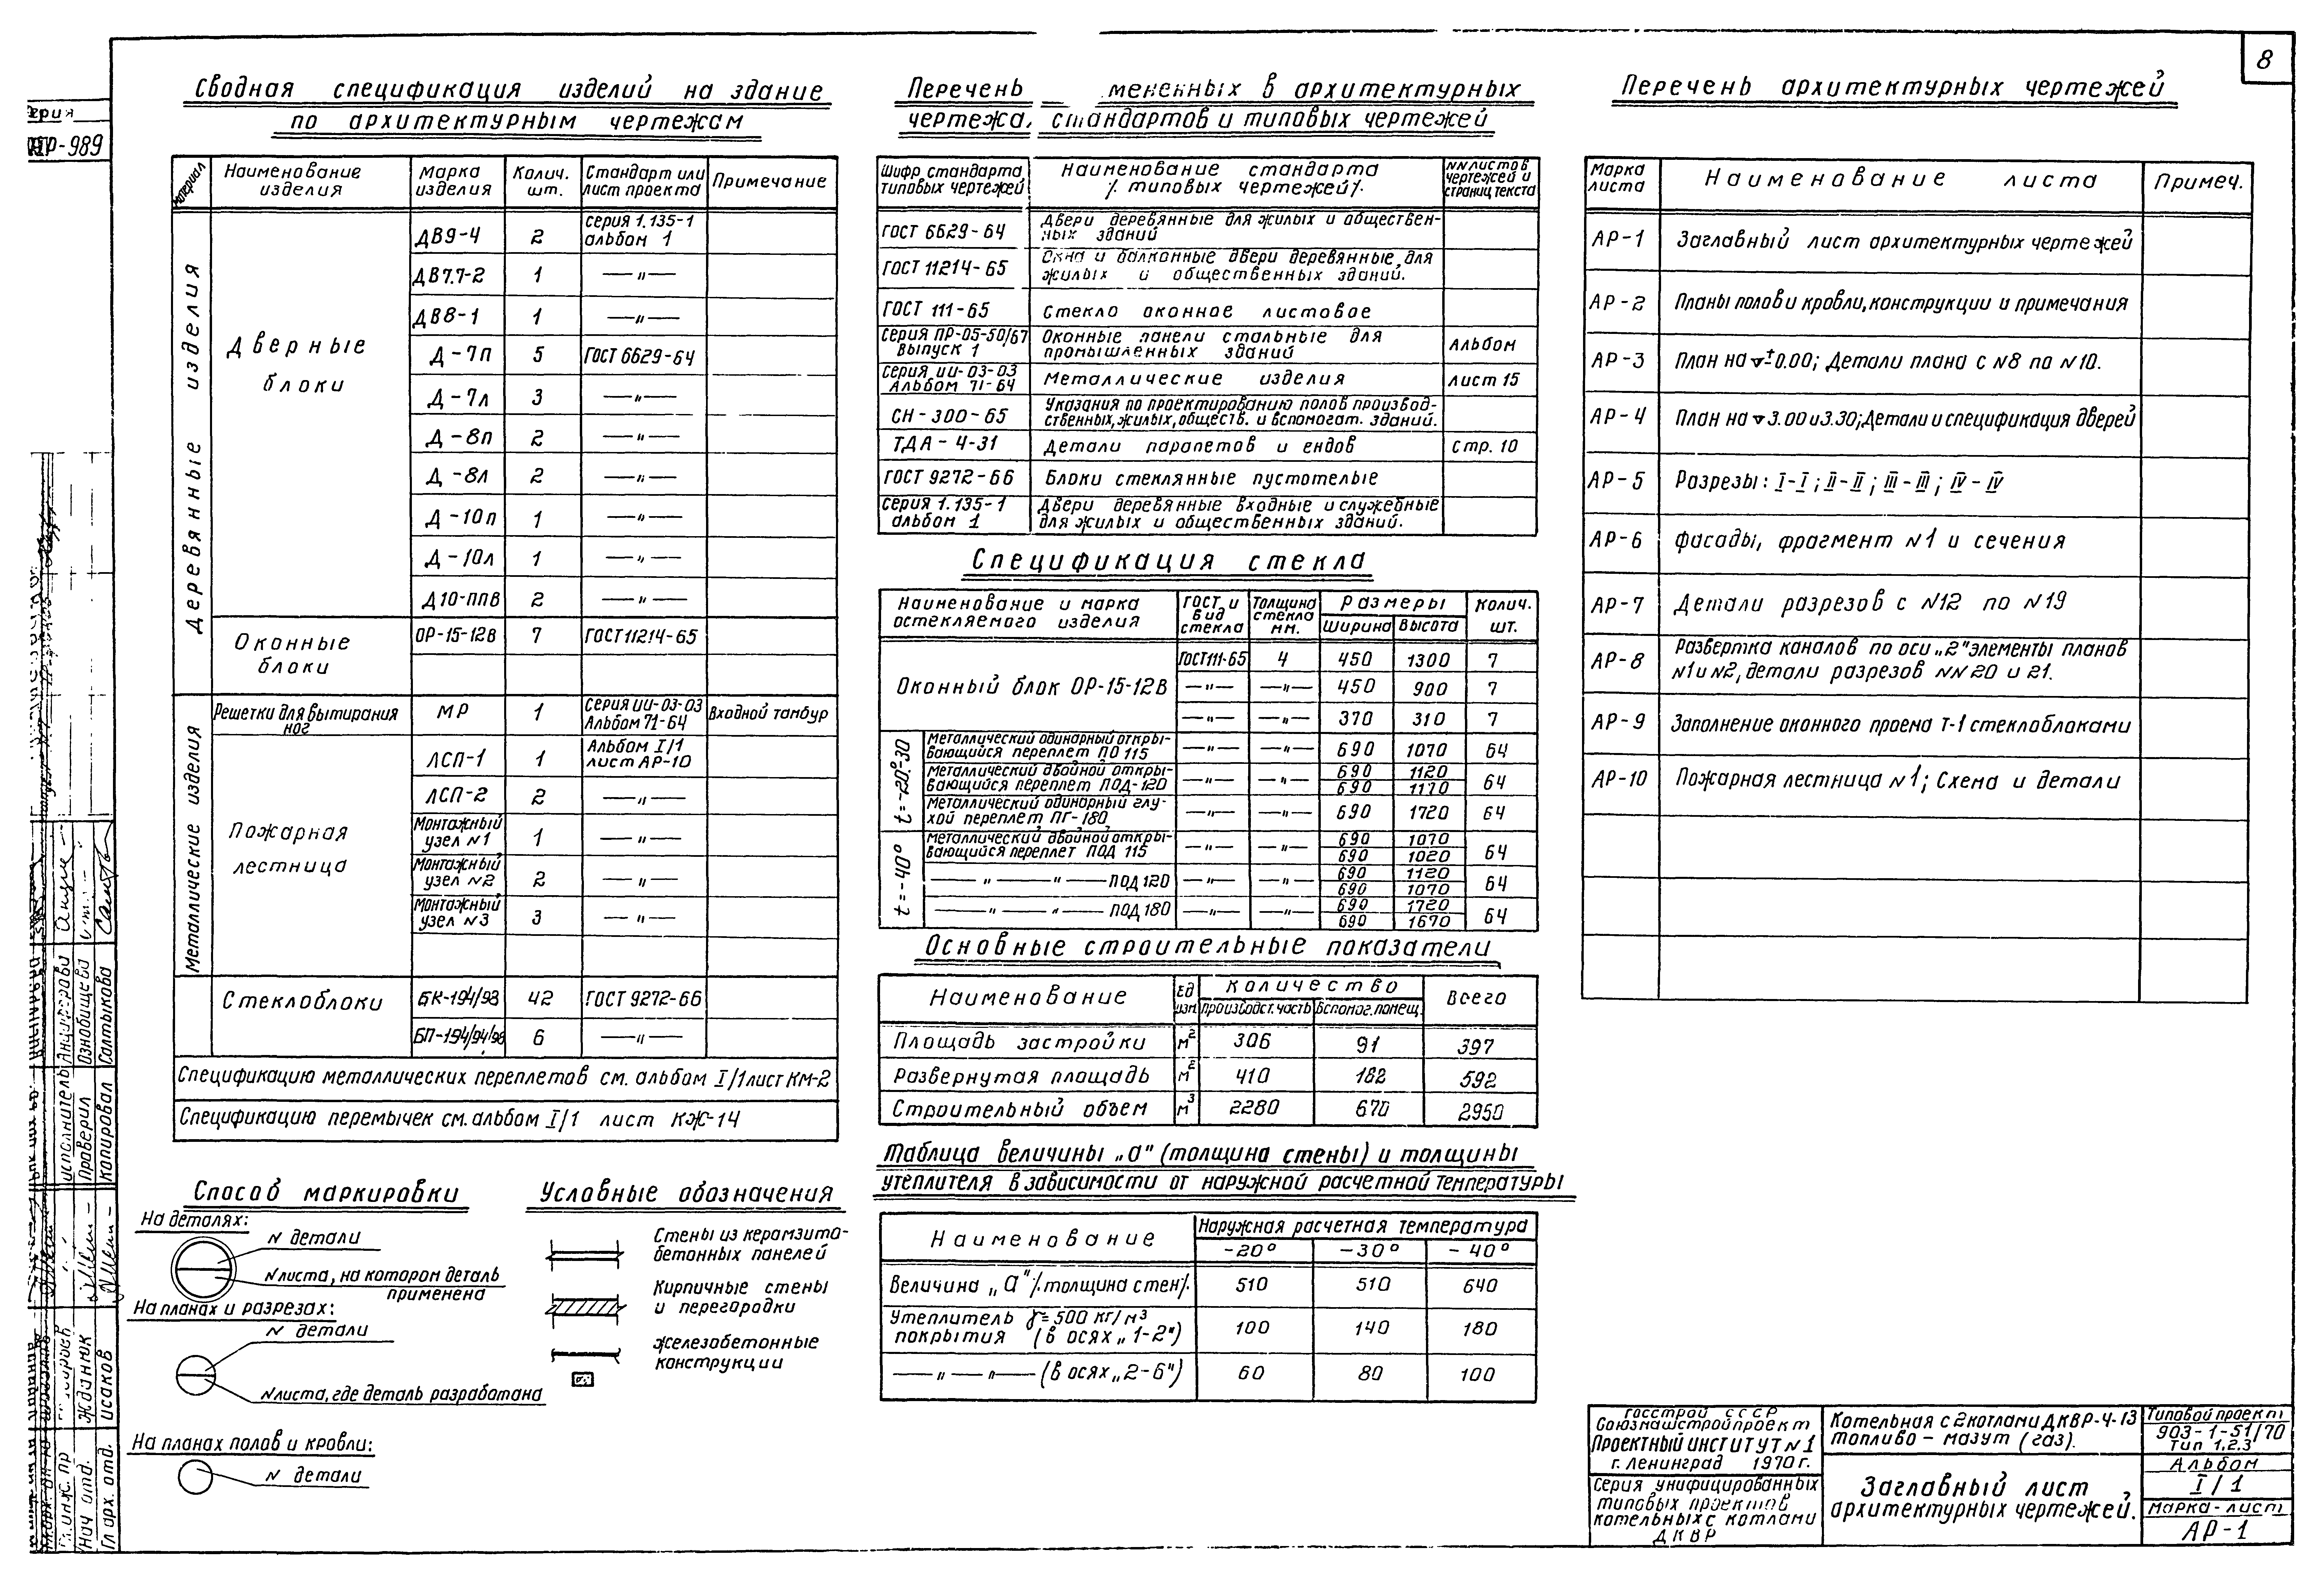 8
Сводная спецификация изделий на здание
по архитектурным чертежам
Материал
Наименование изделия
Марка изделия
Колич. шт.
Стандарт или лист проекта
Примечание
Деревянные изделия
Дверные блоки
ДВ9-4 2 Серия 1.135-1 альбом 1
ДВ7.7-2 1 —"—
ДВ8-1 1 —"—
Д-7п 5 ГОСТ 6629-64
Д-7л 3 —"—
Д-8п 2 —"—
Д-8л 2 —"—
Д-10п 1 —"—
Д-10л 1 —"—
Д10-ППВ 2 —"—
Оконные блоки
ОР-15-12В 7 ГОСТ 11214-65
Металлические изделия
Решетки для вытирания ног МР 1 Серия ИИ-03-03 Альбом 71-64 Входной тамбур
Пожарная лестница
ЛСП-1 1 Альбом I/1 лист АР-10
ЛСП-2 2 —"—
Монтажный узел N1 1 —"—
Монтажный узел N2 2 —"—
Монтажный узел N3 3 —"—
Стеклоблоки
БК-194/98 42 ГОСТ 9272-66
БП-194/94/98 6 —"—
Спецификацию металлических переплетов см. альбом I/1 лист КМ-2
Спецификацию перемычек см. альбом I/1 лист КЖ-14
Способ маркировки
На деталях:
N детали
N листа, на котором деталь
применена
На планах и разрезах:
N детали
N листа, где деталь разработана
На планах полов и кровли:
N детали
Условные обозначения
Стены из керамзито-
бетонных панелей
Кирпичные стены
и перегородки
Железобетонные
конструкции
Перечень мененных в архитектурных
чертежа, стандартов и типовых чертежей
Шифр стандарта, типовых чертежей
Наименование стандарта /типовых чертежей/.
NN листов чертежей и страниц текста
ГОСТ 6629-64 Двери деревянные для жилых и обществен-
ных зданий
ГОСТ 11214-65 Окна и балконные двери деревянные, для
жилых и общественных зданий.
ГОСТ 111-65 Стекло оконное листовое
Серия ПР-05-50/67 Выпуск 1 Оконные панели стальные для
промышленных зданий Альбом
Серия ИИ-03-03 Альбом 71-64 Металлические изделия лист 15
СН-300-65 Указания по проектированию полов производ-
ственных, жилых, обществ. и вспомогат. зданий.
ТДА-4-31 Детали парапетов и ендов стр. 10
ГОСТ 9272-66 Блоки стеклянные пустотелые
Серия 1.135-1 альбом 1 Двери деревянные входные и служебные
для жилых и общественных зданий.
Спецификация стекла
Наименование и марка остекляемого изделия
ГОСТ и вид стекла
Толщина стекла мм.
Размеры
ширина высота
Колич. шт.
Оконный блок ОР-15-12В
ГОСТ 111-65 4 450 1300 7
—"— —"— 450 900 7
—"— —"— 370 310 7
t=-20;-30°
Металлический одинарный откры-
вающийся переплет ПО 115 —"— —"— 690 1070 64
Металлический двойной откры-
вающийся переплет ПОД-120 —"— —"— 690 1120 690 1170 64
Металлический одинарный глу-
хой переплет ПГ-180 —"— —"— 690 1720 64
t=-40°
Металлический двойной откры-
вающийся переплет ПОД 115 —"— —"— 690 1070 690 1020 64
—"— —"— ПОД 120 —"— —"— 690 1120 690 1070 64
—"— —"— ПОД 180 —"— —"— 690 1720 690 1670 64
Основные строительные показатели
Наименование
Ед изм.
Количество
Производст. часть Вспомог. помещ.
Всего
Площадь застройки м² 306 91 397
Развернутая площадь м² 410 182 592
Строительный объем м³ 2280 670 2950
Таблица величины „а" (толщина стены) и толщины
утеплителя в зависимости от наружной расчетной температуры
Наименование
Наружная расчетная температура
-20° -30° -40°
Величина „а" /толщина стен/. 510 510 640
Утеплитель γ=500 кг/м³
покрытия (в осях „1-2") 100 140 180
—"—"— (в осях „2-6") 60 80 100
Перечень архитектурных чертежей
Марка листа
Наименование листа
Примеч.
АР-1 Заглавный лист архитектурных чертежей
АР-2 Планы полов и кровли, конструкции и примечания
АР-3 План на ▽±0.00; Детали плана с N8 по N10.
АР-4 План на ▽3.00 и 3.30; Детали и спецификация дверей
АР-5 Разрезы: I-I; II-II; III-III; IV-IV
АР-6 Фасады, фрагмент N1 и сечения
АР-7 Детали разрезов с N12 по N19
АР-8 Развертка каналов по оси „2" элементы планов
N1 и N2, детали разрезов NN 20 и 21.
АР-9 Заполнение оконного проема Т-1 стеклоблоками
АР-10 Пожарная лестница N1; Схема и детали
Госстрой СССР
Союзмашстройпроект
Проектный институт N1
г. Ленинград 1970 г.
Серия унифицированных
типовых проектов
котельных с котлами
ДКВР
Котельная с 2 котлами ДКВР-4-13
топливо - мазут (газ).
Заглавный лист
архитектурных чертежей.
Типовой проект
903-1-51/70
Тип 1.2.3
Альбом
I/1
Марка-лист
АР-1
ерия
-989
Исполнитель
Проверил Ознобищева
Копировал Салтыкова
Нач отд. Жданюк
Гл арх. отд. Исаков